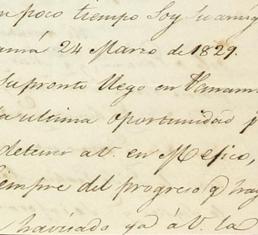 poco tiempo Soy su amig
24 Marzo de 1829.
pronto llego en Panam
ultima oportunidad p
detener aV. en Mejico,
empre del progreso q hay
havisado ya á V. la